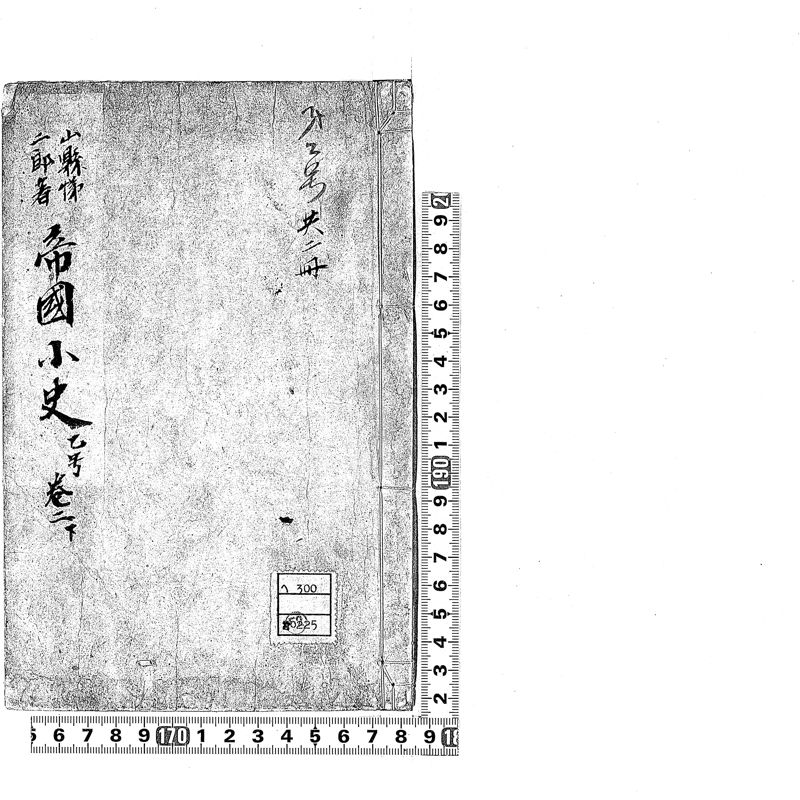 共二冊
山縣悌
二郎著
帝國小史 乙号 卷二下
ヘ 300
6 7 8 9 170 1 2 3 4 5 6 7 8 9 18
2 3 4 5 6 7 8 9 190 1 2 3 4 5 6 7 8 9 2